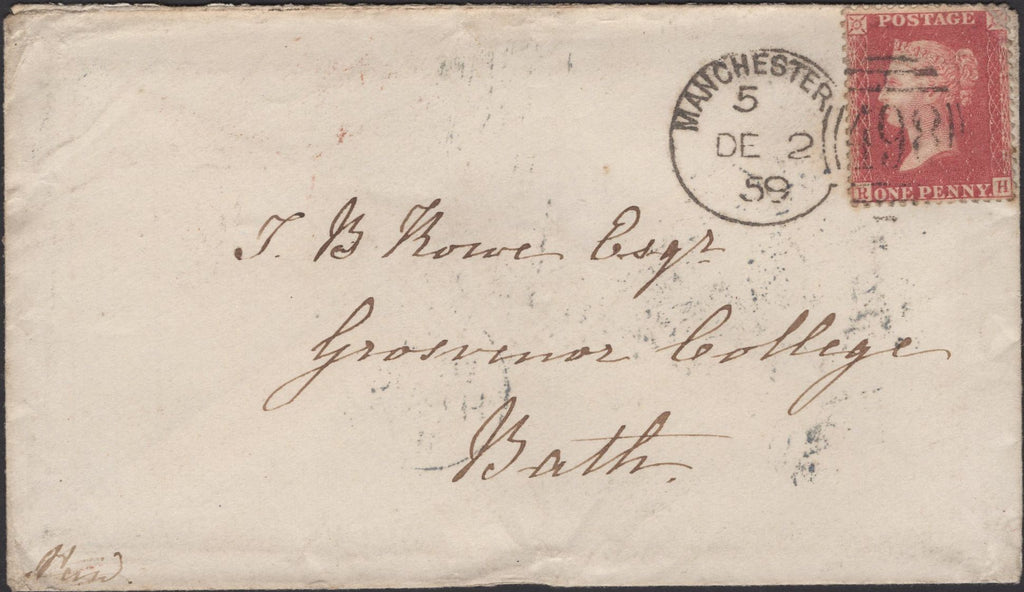 POSTAGE
MANCHESTER
5
DE 2
59
498
R ONE PENNY H
J. B Rowe Esqr
Grosvenor College
Bath.